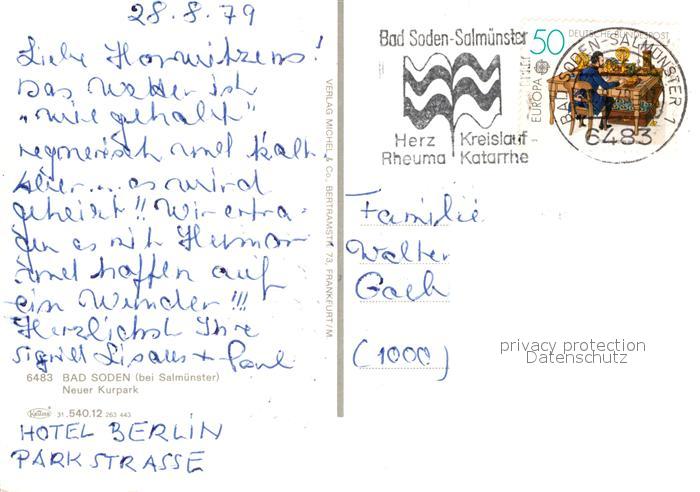 28.8.79
Liebe Horwitzens!
Das Wetter ist
"wie gehabt"
regnerisch und kalt
aber... es wird
geheizt!! Wir ertra-
gen es mit Humor
und hoffen auf
ein Wunder!!!
Herzlichst Ihre
+ Paul
6483 BAD SODEN (bei Salmünster)
Neuer Kurpark
31.540.12 263 443
HOTEL BERLIN
PARKSTRASSE
VERLAG MICHEL & Co., BERTRAMSTR. 73, FRANKFURT/M.
Bad Soden-Salmünster
Herz Kreislauf-
Rheuma Katarrhe
50 DEUTSCHE BUNDESPOST
EUROPA
BAD SODEN-SALMÜNSTER 1
6483
Familie
Walter
(1000)
privacy protection
Datenschutz